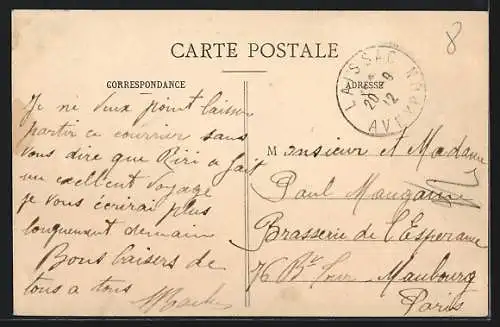 8
CARTE POSTALE
CORRESPONDANCE
ADRESSE
LAISSAC
20 - 9
12
AVEYRON
Je ne veux point laisser
partir ce courrier sans
vous dire que Riri a fait
un exellent voyage
je vous écrirai plus
longuement demain
Bons baisers de
tous a tous
Monsieur et Madame
Paul Maugain
Brasserie de l'Esperance
76 Bd Tour Maubourg
Paris